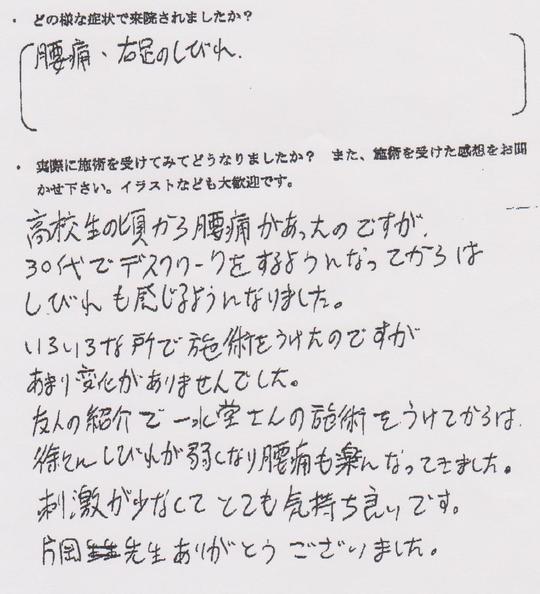 ・ どの様な症状で来院されましたか？
腰痛、右足のしびれ.
・ 実際に施術を受けてみてどうなりましたか？ また、施術を受けた感想をお聞
かせ下さい。イラストなども大歓迎です。
高校生の頃から腰痛があったのですが、
30代でデスクワークをするようになってからは
しびれも感じるようになりました。
いろいろな所で施術をうけたのですが
あまり変化がありませんでした。
友人の紹介で一水堂さんの施術をうけてからは、
徐々にしびれが弱くなり腰痛も楽になってきました。
刺激が少なくてとても気持ち良いです。
片岡先生ありがとうございました。